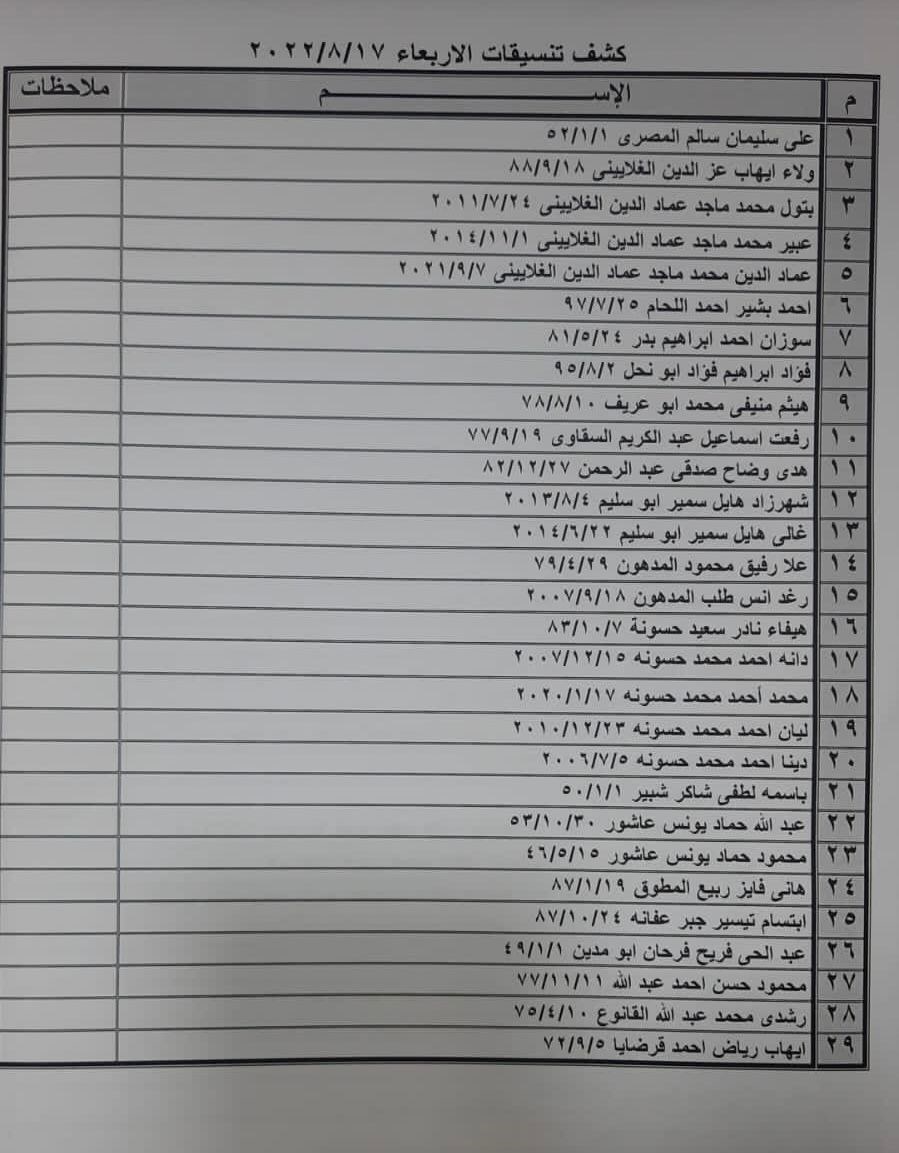 كشف تنسيقات الاربعاء ٢٠٢٢/٨/١٧
م الإســـــــم ملاحظات
١ على سليمان سالم المصرى ٥٢/١/١
٢ ولاء ايهاب عز الدين الغلايينى ٨٨/٩/١٨
٣ بتول محمد ماجد عماد الدين الغلايينى ٢٠١١/٧/٢٤
٤ عبير محمد ماجد عماد الدين الغلايينى ٢٠١٤/١١/١
٥ عماد الدين محمد ماجد عماد الدين الغلايينى ٢٠٢١/٩/٧
٦ احمد بشير احمد اللحام ٩٧/٧/٢٥
٧ سوزان احمد ابراهيم بدر ٨١/٥/٢٤
٨ فؤاد ابراهيم فؤاد ابو نحل ٩٥/٨/٢
٩ هيثم منيفى محمد ابو عريف ٧٨/٨/١٠
١٠ رفعت اسماعيل عبد الكريم السقاوى ٧٧/٩/١٩
١١ هدى وضاح صدقى عبد الرحمن ٨٢/١٢/٢٧
١٢ شهرزاد هايل سمير ابو سليم ٢٠١٣/٨/٤
١٣ غالى هايل سمير ابو سليم ٢٠١٤/٦/٢٢
١٤ علا رفيق محمود المدهون ٧٩/٤/٢٩
١٥ رغد انس طلب المدهون ٢٠٠٧/٩/١٨
١٦ هيفاء نادر سعيد حسونة ٨٣/١٠/٧
١٧ دانه احمد محمد حسونه ٢٠٠٧/١٢/١٥
١٨ محمد أحمد محمد حسونه ٢٠٢٠/١/١٧
١٩ ليان احمد محمد حسونه ٢٠١٠/١٢/٢٣
٢٠ دينا احمد محمد حسونه ٢٠٠٦/٧/٥
٢١ باسمه لطفى شاكر شبير ٥٠/١/١
٢٢ عبد الله حماد يونس عاشور ٥٣/١٠/٣٠
٢٣ محمود حماد يونس عاشور ٤٦/٥/١٥
٢٤ هانى فايز ربيع المطوق ٨٧/١/١٩
٢٥ ابتسام تيسير جبر عفانه ٨٧/١٠/٢٤
٢٦ عبد الحى فريح فرحان ابو مدين ٤٩/١/١
٢٧ محمود حسن احمد عبد الله ٧٧/١١/١١
٢٨ رشدى محمد عبد الله القانوع ٧٥/٤/١٠
٢٩ ايهاب رياض احمد قرضايا ٧٢/٩/٥